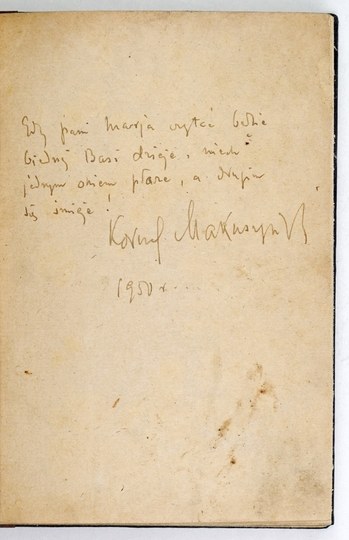 Gdy pani Marja czytać będzie
biednej Basi dzieje, niech
jednym okiem płacze, a drugim
się śmieje!
Kornel Makuszyński
1950 r.